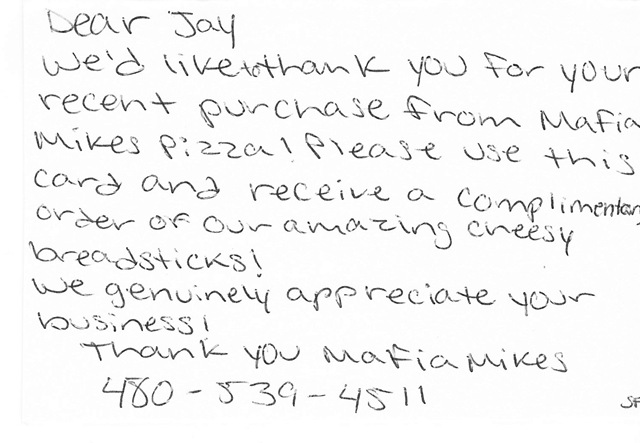 Dear Jay
We'd like to thank you for your
recent purchase from Mafia
Mikes pizza! Please use this
card and receive a complimentary
order of our amazing cheesy
breadsticks!
We genuinely appreciate your
business!
Thank you Mafia Mikes
480-539-4511
SF